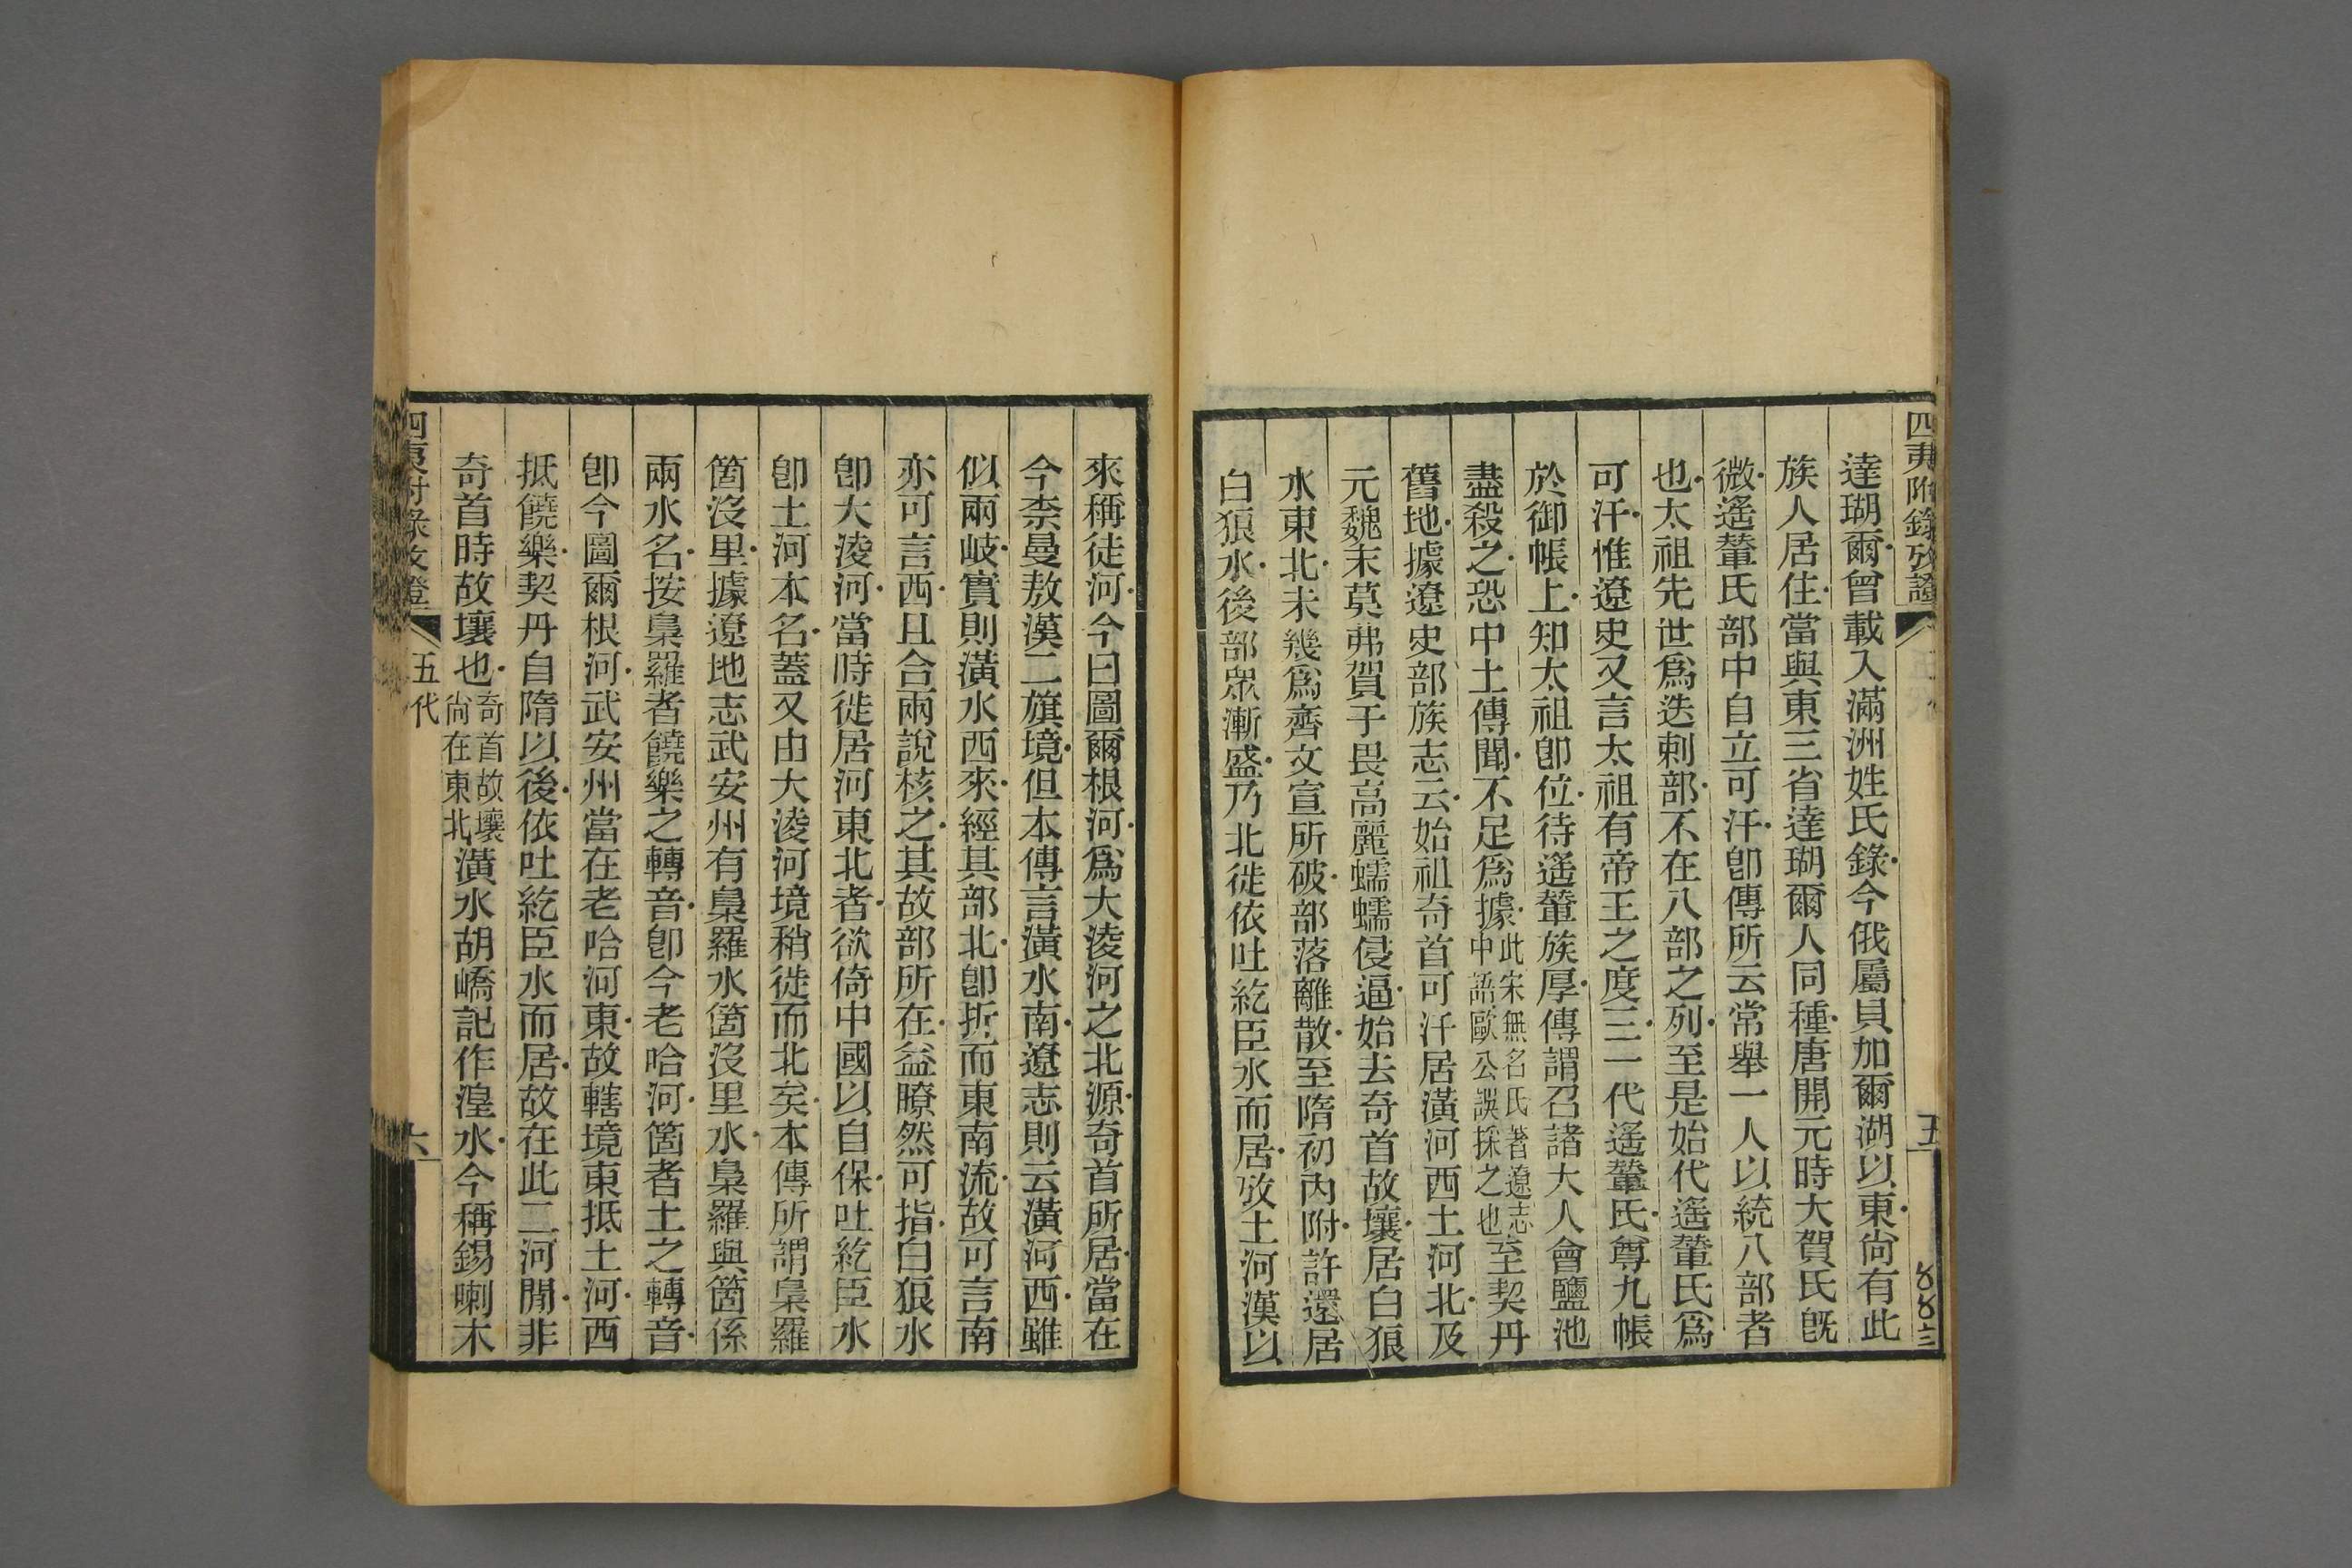 四夷附錄攷證
五
達瑚爾曾載入滿洲姓氏錄今俄屬貝加爾湖以東尙有此
族人居住當與東三省達瑚爾人同種唐開元時大賀氏旣
微遙輦氏部中自立可汗卽傳所云常舉一人以統八部者
也太祖先世爲迭剌部不在八部之列至是始代遙輦氏爲
可汗惟遼史又言太祖有帝王之度三一代遙輦氏尊九帳
於御帳上知太祖卽位待遙輦族厚傳謂召諸大人會鹽池
盡殺之恐中土傳聞不足爲據此宋無名氏著遼志中語歐公誤採之也至契丹
舊地據遼史部族志云始祖奇首可汗居潢河西土河北及
元魏末莫弗賀于畏高麗蠕蠕侵逼始去奇首故壤居白狼
水東北未幾爲齊文宣所破部落離散至隋初內附許還居
白狼水後部眾漸盛乃北徙依吐紇臣水而居攷土河漢以
來稱徒河今曰圖爾根河爲大淩河之北源奇首所居當在
今柰曼敖漢二旗境但本傳言潢水南遼志則云潢河西雖
似兩岐實則潢水西來經其部北卽折而東南流故可言南
亦可言西且合兩說核之其故部所在益瞭然可指白狼水
卽大淩河當時徙居河東北者欲倚中國以自保吐紇臣水
卽土河本名蓋又由大淩河境稍徙而北矣本傳所謂梟羅
箇沒里據遼地志武安州有梟羅水箇沒里水梟羅與箇係
兩水名按梟羅者饒樂之轉音卽今老哈河箇者土之轉音
卽今圖爾根河武安州當在老哈河東故轄境東抵土河西
抵饒樂契丹自隋以後依吐紇臣水而居故在此二河閒非
奇首時故壤也奇首故壤尙在東北潢水胡嶠記作湟水今稱錫喇木
四夷附錄攷證
五代
六